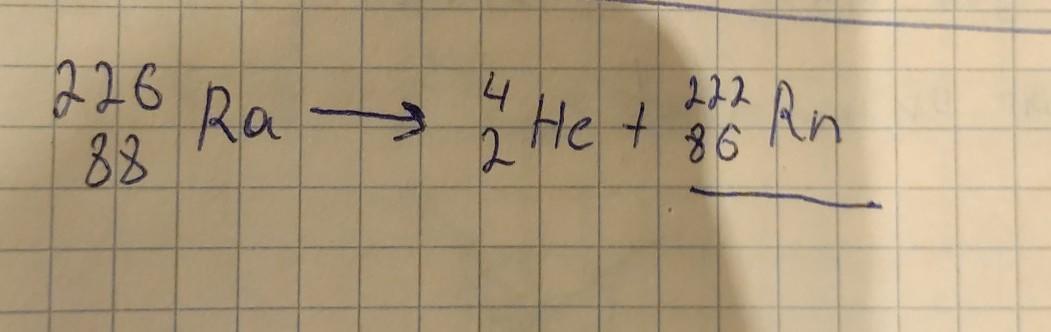 ²²⁶₈₈Ra → ⁴₂He + ²²²₈₆Rn